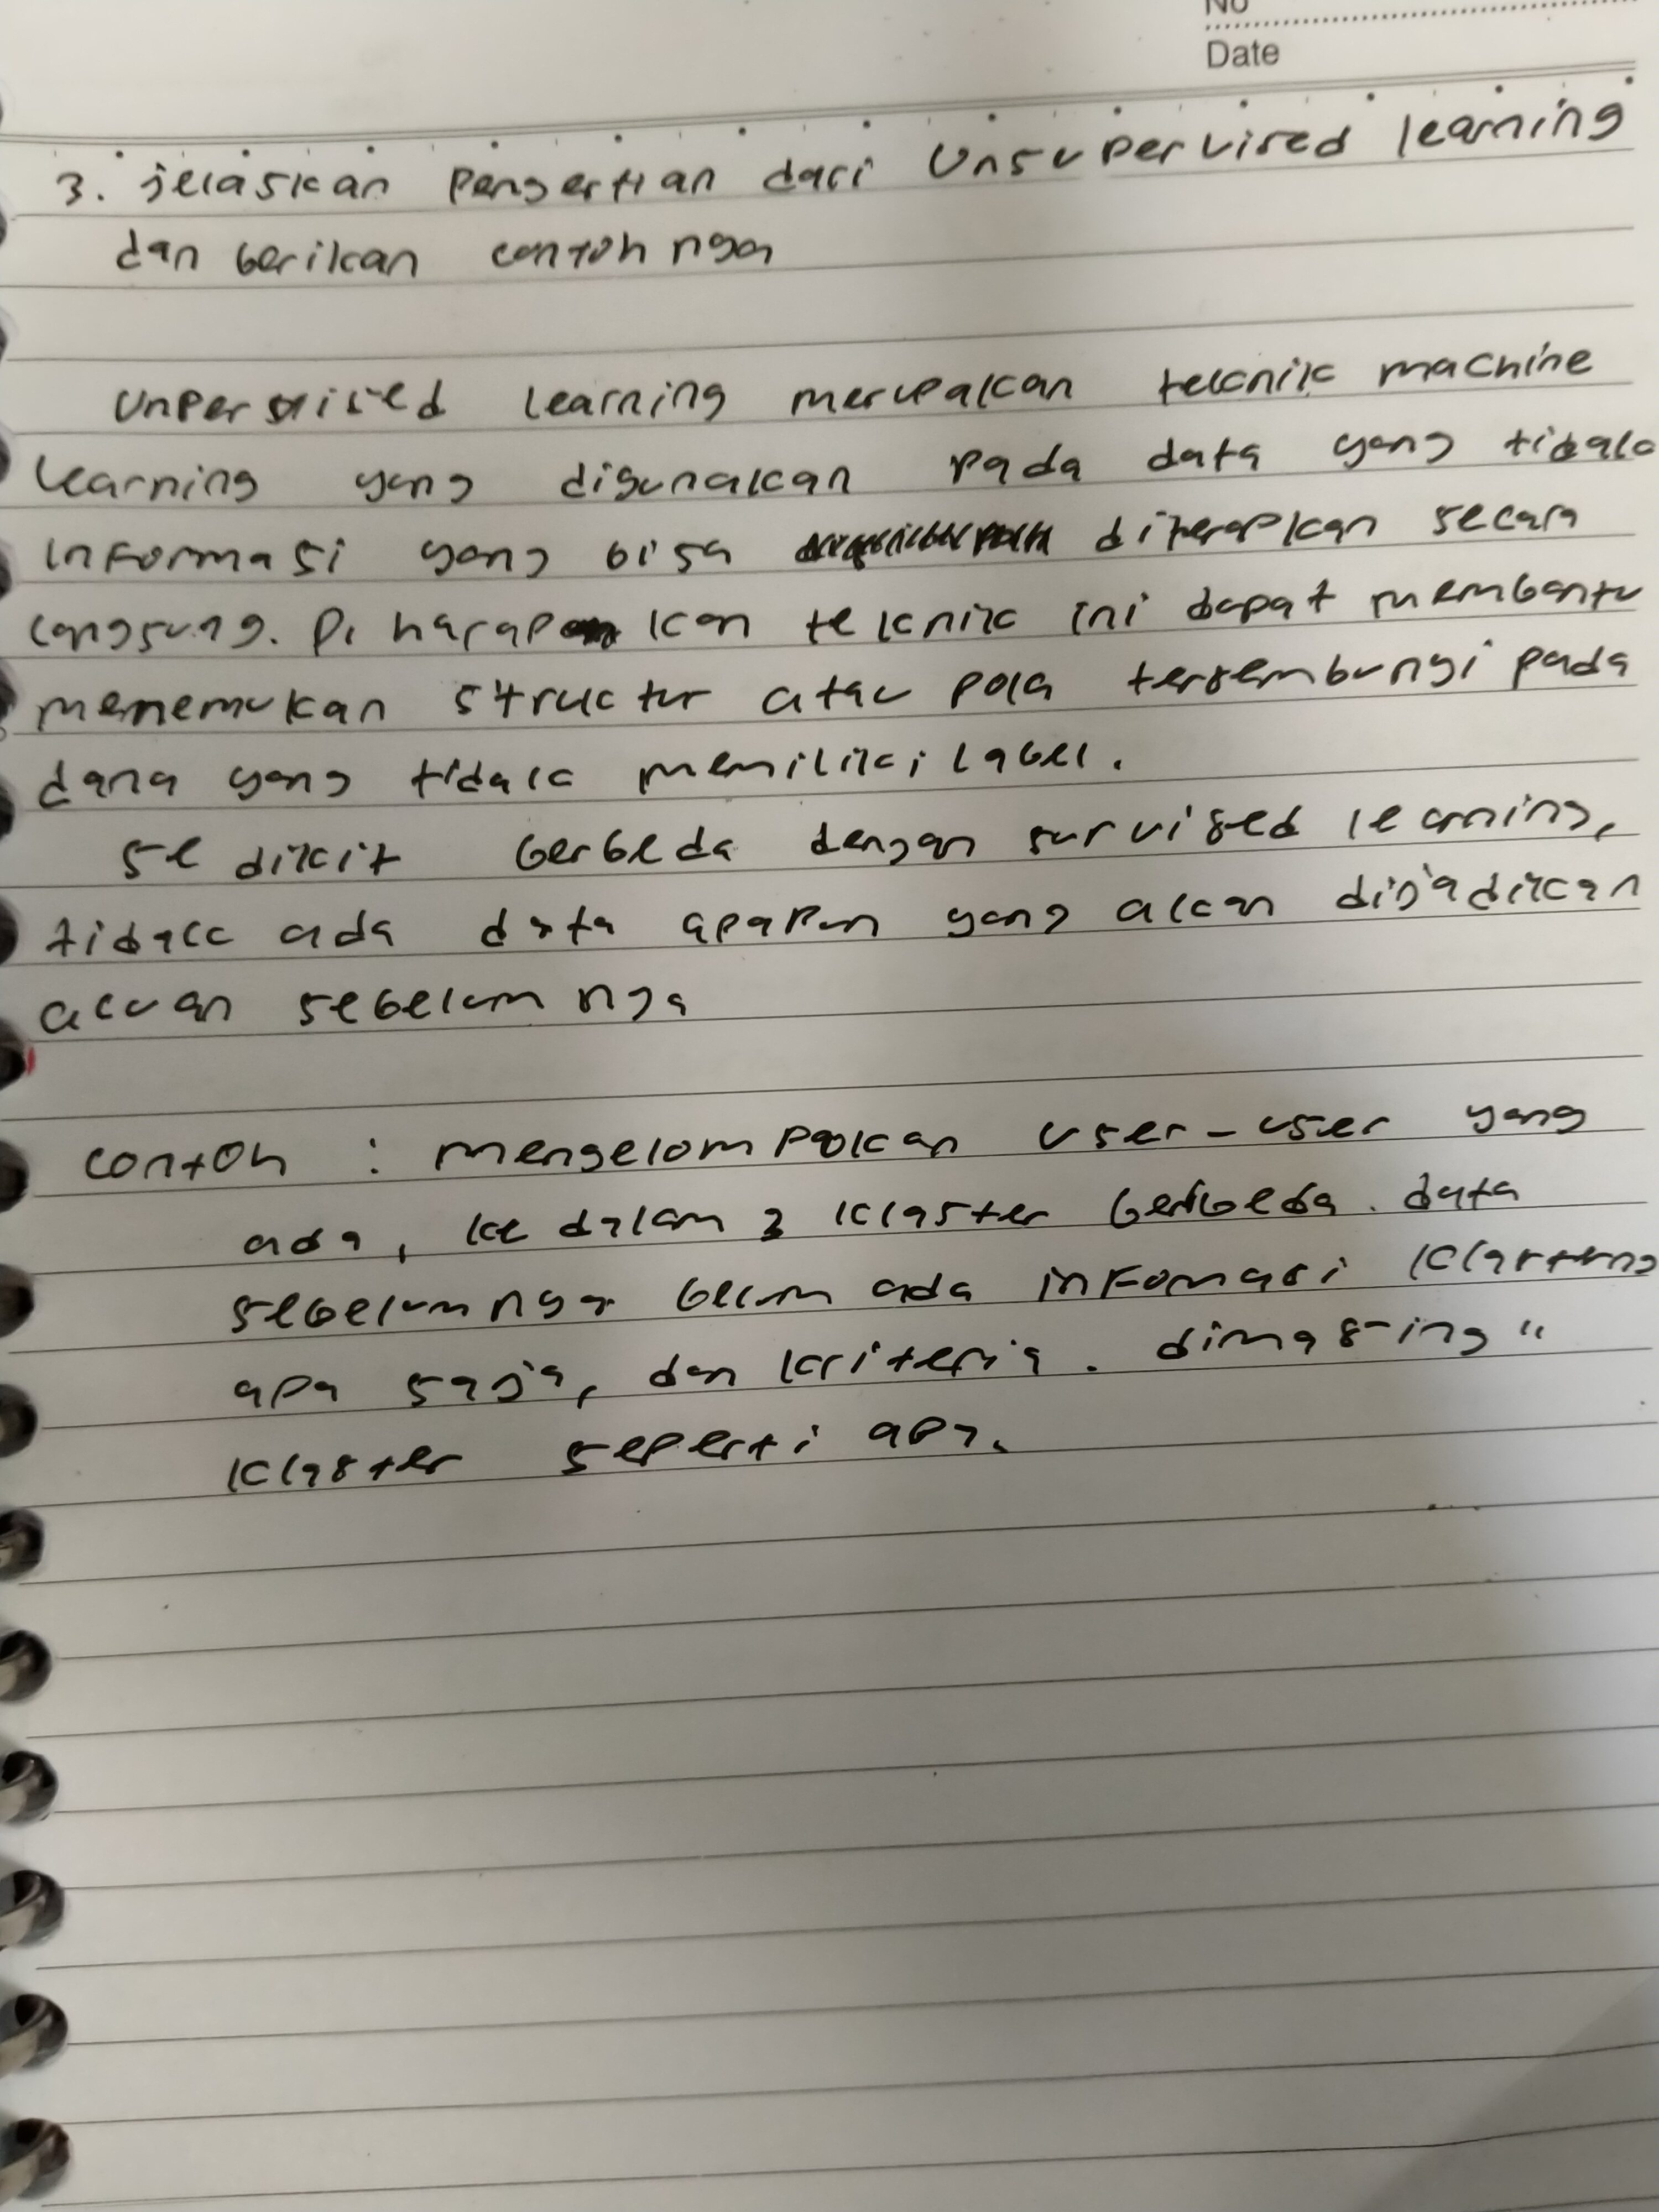 No
Date
3. jelaskan pengertian dari Unsupervised learning
dan berikan contohnya
Unpervised learning merupakan teknik machine
learning yang digunakan pada data yang tidak
informasi yang bisa diterapkan secara
langsung. Di harapkan teknik ini dapat membantu
menemukan structur atau pola tersembungi pada
dana yang tidak memiliki label.
Se dikit berbeda dengan survised learning,
tidak ada data apapun yang akan dijadikan
acuan sebelum nya
contoh : mengelompokan user-user yang
ada, ke dalam 3 klaster berbeda. data
sebelumnya belum ada infomasi
apa saja, dan kriteria. dimasing"
klaster seperti apa.